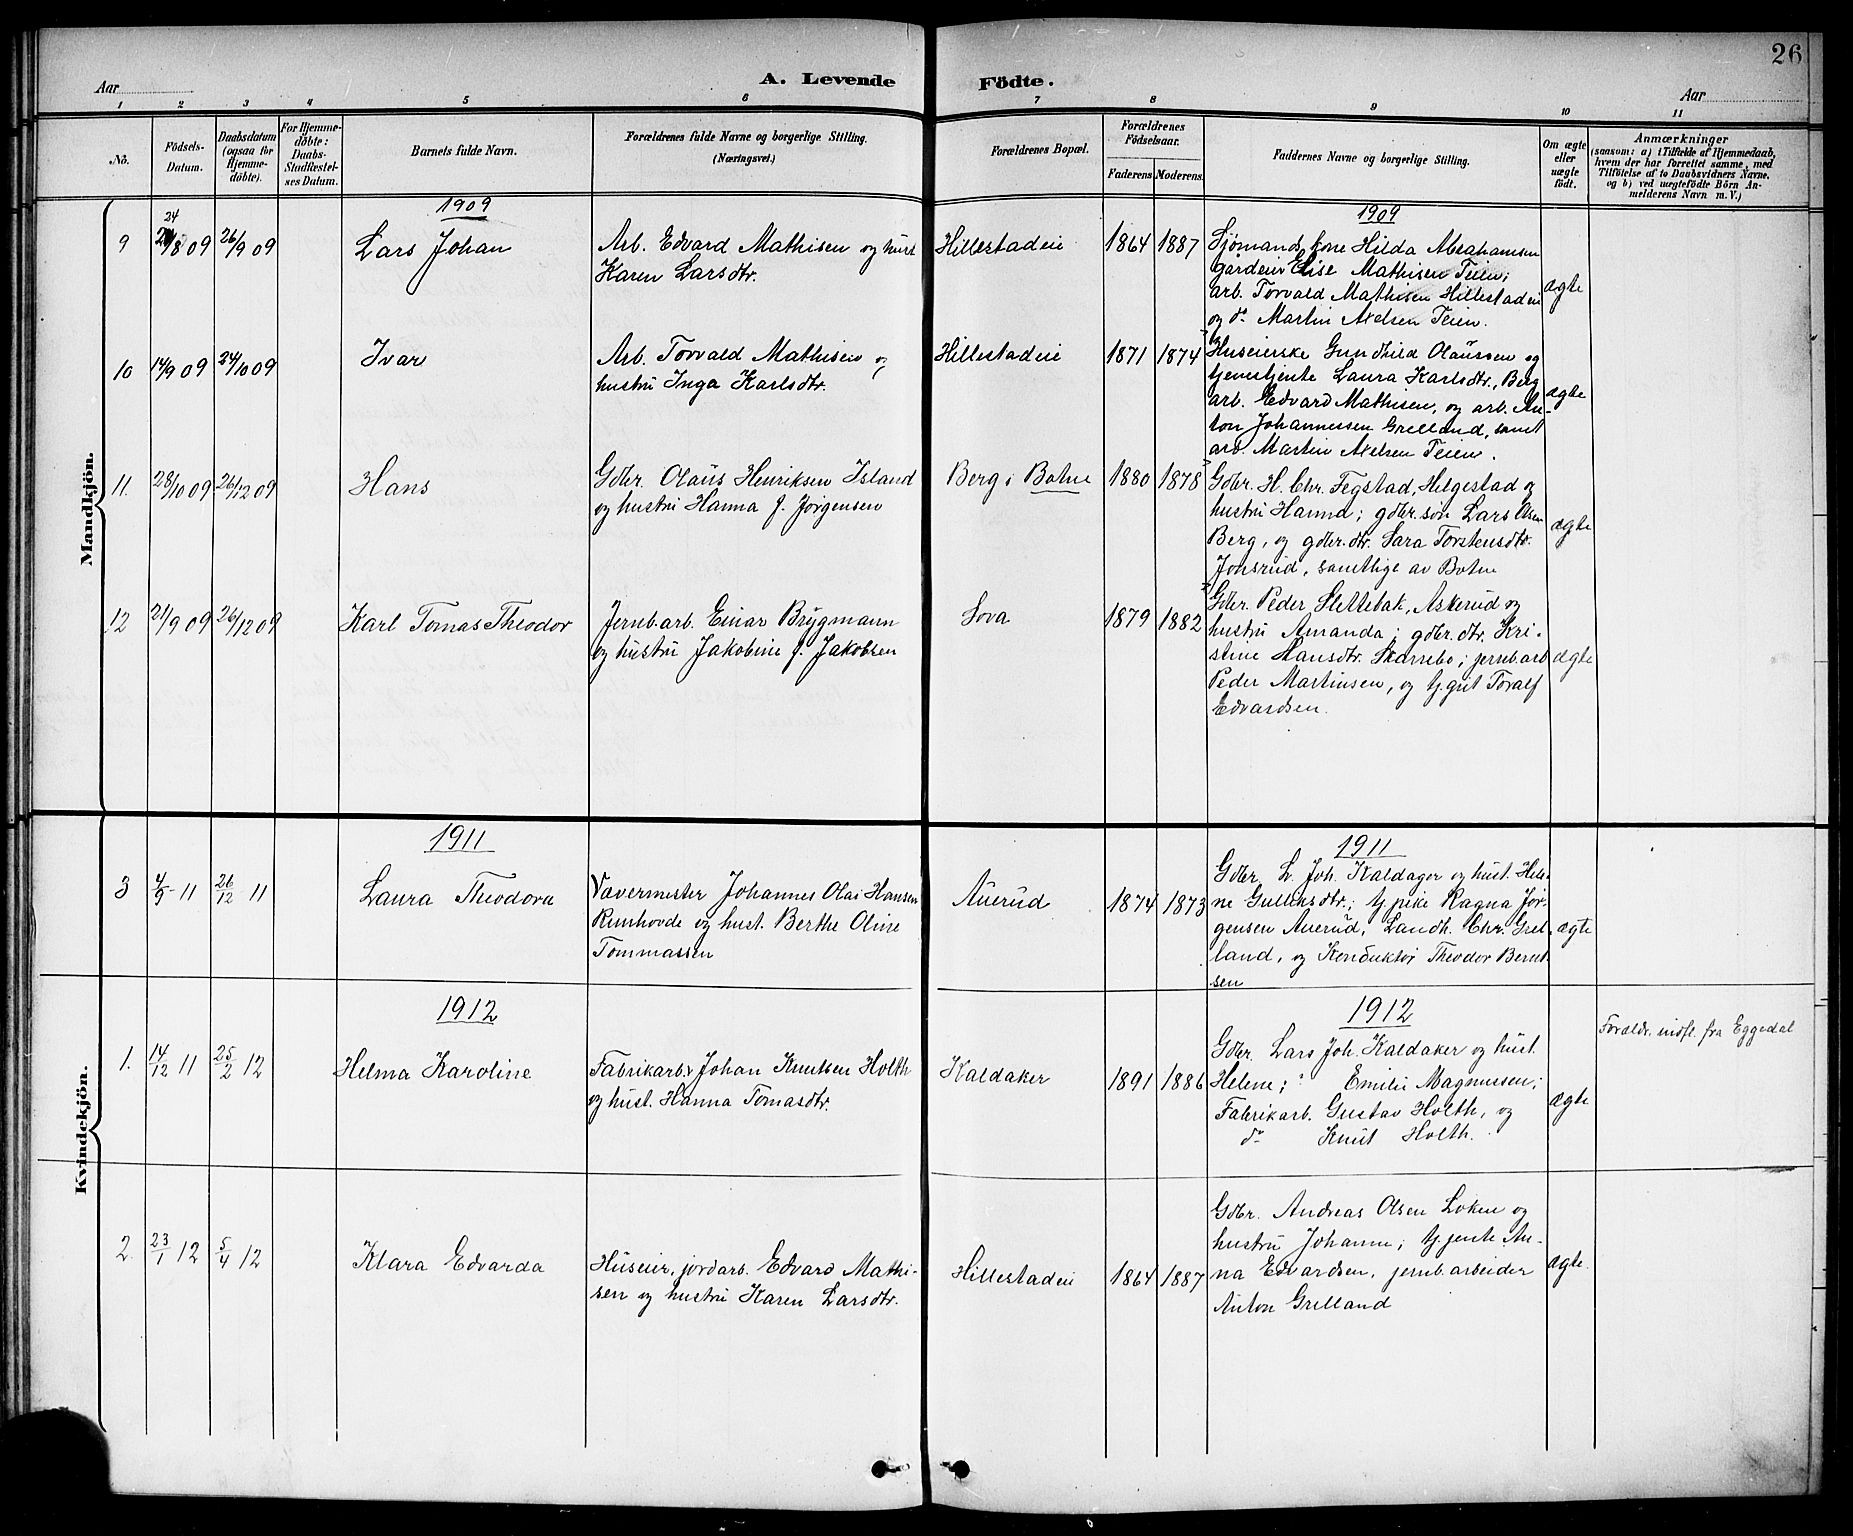 26
Aar
A. Levende Födte.
Aar
1 2 3 4 5 6 7 8 9 10 11
No.
Födsels-Datum.
Daabsdatum (ogsaa for Hjemme-döbte).
For Hjemme-döbte: Daabs-Stadfæstel-ses Datum.
Barnets fulde Navn.
Forældrenes fulde Navne og borgerlige Stilling.
(Næringsvei.)
Forældrenes Bopæl.
Forældrenes Födselsaar.
Faderens. Moderens.
Faddernes Navne og borgerlige Stilling.
Om ægte eller uægte födt.
Anmærkninger
(saasom: a) i Tilfælde af Hjemmedaab,
hvem der har forrettet samme, med
Tilföielse af to Daabsvidners Navne.
og b) ved uægtefödte Börn An-
melderens Navn m. V.)
Mandkjön.
1909 1909
9 24/8 09 26/9 09 Lars Johan
Arb. Edvard Mathisen og hust
Karen Larsdtr.
Hillestadeie 1864 1887
Sjömands kone Hilda Abrahamsen
gårdeier Elise Mathisen Teien;
arb. Torvald Mathisen Hillestadeie
og do Martin Axelsen Teien.
ægte
10 14/9 09 24/10 09 Ivar
Arb. Torvald Mathisen og
hustru Inga Karlsdtr.
Hillestadeie 1871 1874
Huseierske Gundhild Olaussen og
tjenestjente Laura Karlsdtr., Berg
arb. Edvard Mathisen, og arb. An-
ton Johannessen Grelland, samt
arb. Martin Axelsen Teien.
ægte
11. 28/10 09 26/12 09 Hans
Gdbr. Olaus Henriksen Island
og hustru Hanna f. Jørgensen
Berg i Botne 1880 1878
Gdbr. H. Chr. Tegstad, Helgestad og
hustru Hanna; gdbr. søn Lars Olsen
Berg, og gdbr. dtr. Sara Torstensdtr.
Jonsrud, samtlige av Botne
ægte
12 21/9 09 26/12 09 Karl Tomas Theodor
Jernb.arb. Einar Brygmann
og hustru Jakobine f. Jakobsen
Sova 1879 1882
Gdbr. Peder Slettebak, Askerud og
hustru Amanda; gdbr. dtr. Kri-
stine Hansdtr. Skarrebo; jernb.arb
Peder Martinsen, og tj.grit Toralf
Edvardsen.
ægte
Kvindekjön.
1911 1911
3 4/9 11 26/12 11 Laura Theodora
Vavermester Johannes Olai Hansen
Rimhovde og hust. Berthe Oline
Tommassen
Auerud 1874 1873
Gdbr. L. Joh. Kaldager og hust. Hele-
ne Gulliksdtr.; tj.pike Ragna Jør-
gensen Auerud, Landh. Chr. Grel-
land, og Konduktør Theodor Bernt
sen
ægte
1912 1912
1. 14/12 11 25/2 12 Helma Karoline
Fabrikarb. Johan Knutsen Holth
og hust. Hanna Tomasdtr.
Kaldaker 1891 1886
Gdbr. Lars Joh. Kaldaker og hust.
Helene; ? Emilie Magnussen;
Fabrikarb. Gustav Holth, og
do Knut Holth.
ægte
Forældr. indfl. fra Eggedal
2. 23/1 12 5/4 12 Klara Edvarda
Huseier, jordarb. Edvard Mathi-
sen og hustru Karen Larsdtr.
Hillestadeie 1864 1887
Gdbr. Andreas Olsen Løken og
hustru Johanne; tj.jente An-
na Edvardsen, jernb.arbeider
Anton Grelland
ægte.